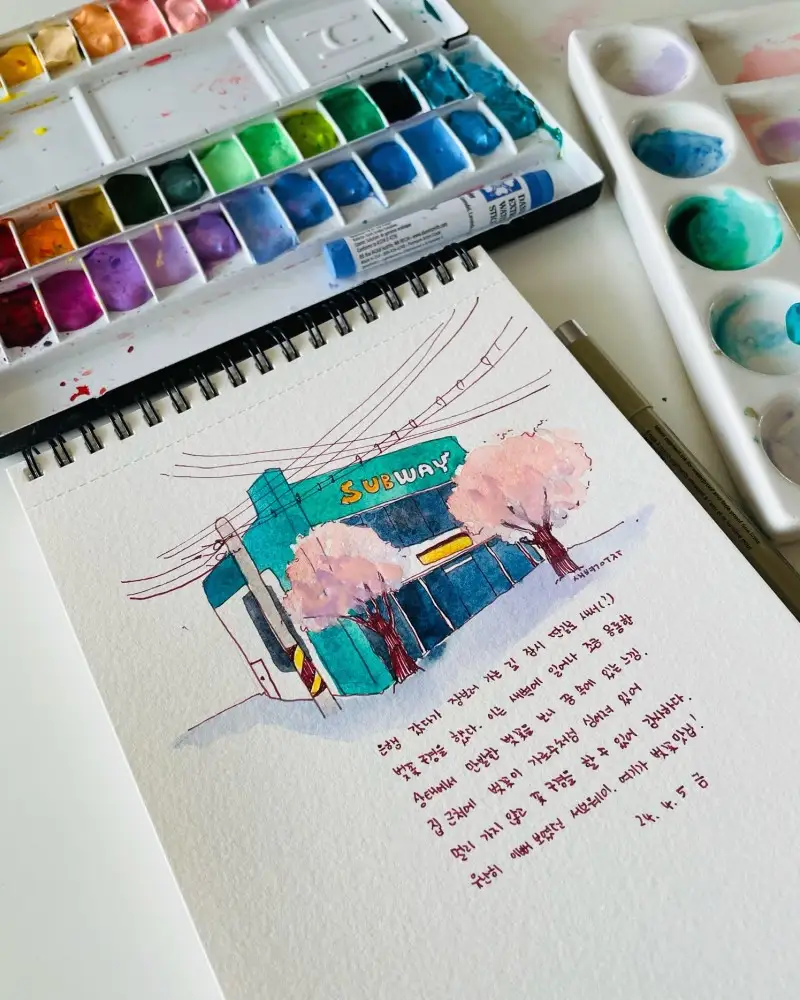 SUBWAY
은행 갔다가 장보러 가는 길 잠시 딴길로 새서(?)
벚꽃 구경을 했다. 이른 새벽에 일어나 조금 몽롱한
상태에서 만발한 벚꽃을 보니 꿈 속에 있는 느낌.
집 근처에 벚꽃이 가로수처럼 심어져 있어
멀리 가지 않고 꽃 구경을 할 수 있어 감사하다.
유난히 예뻐 보였던 서브웨이. 여기가 벚꽃 맛집!
24. 4. 5 금